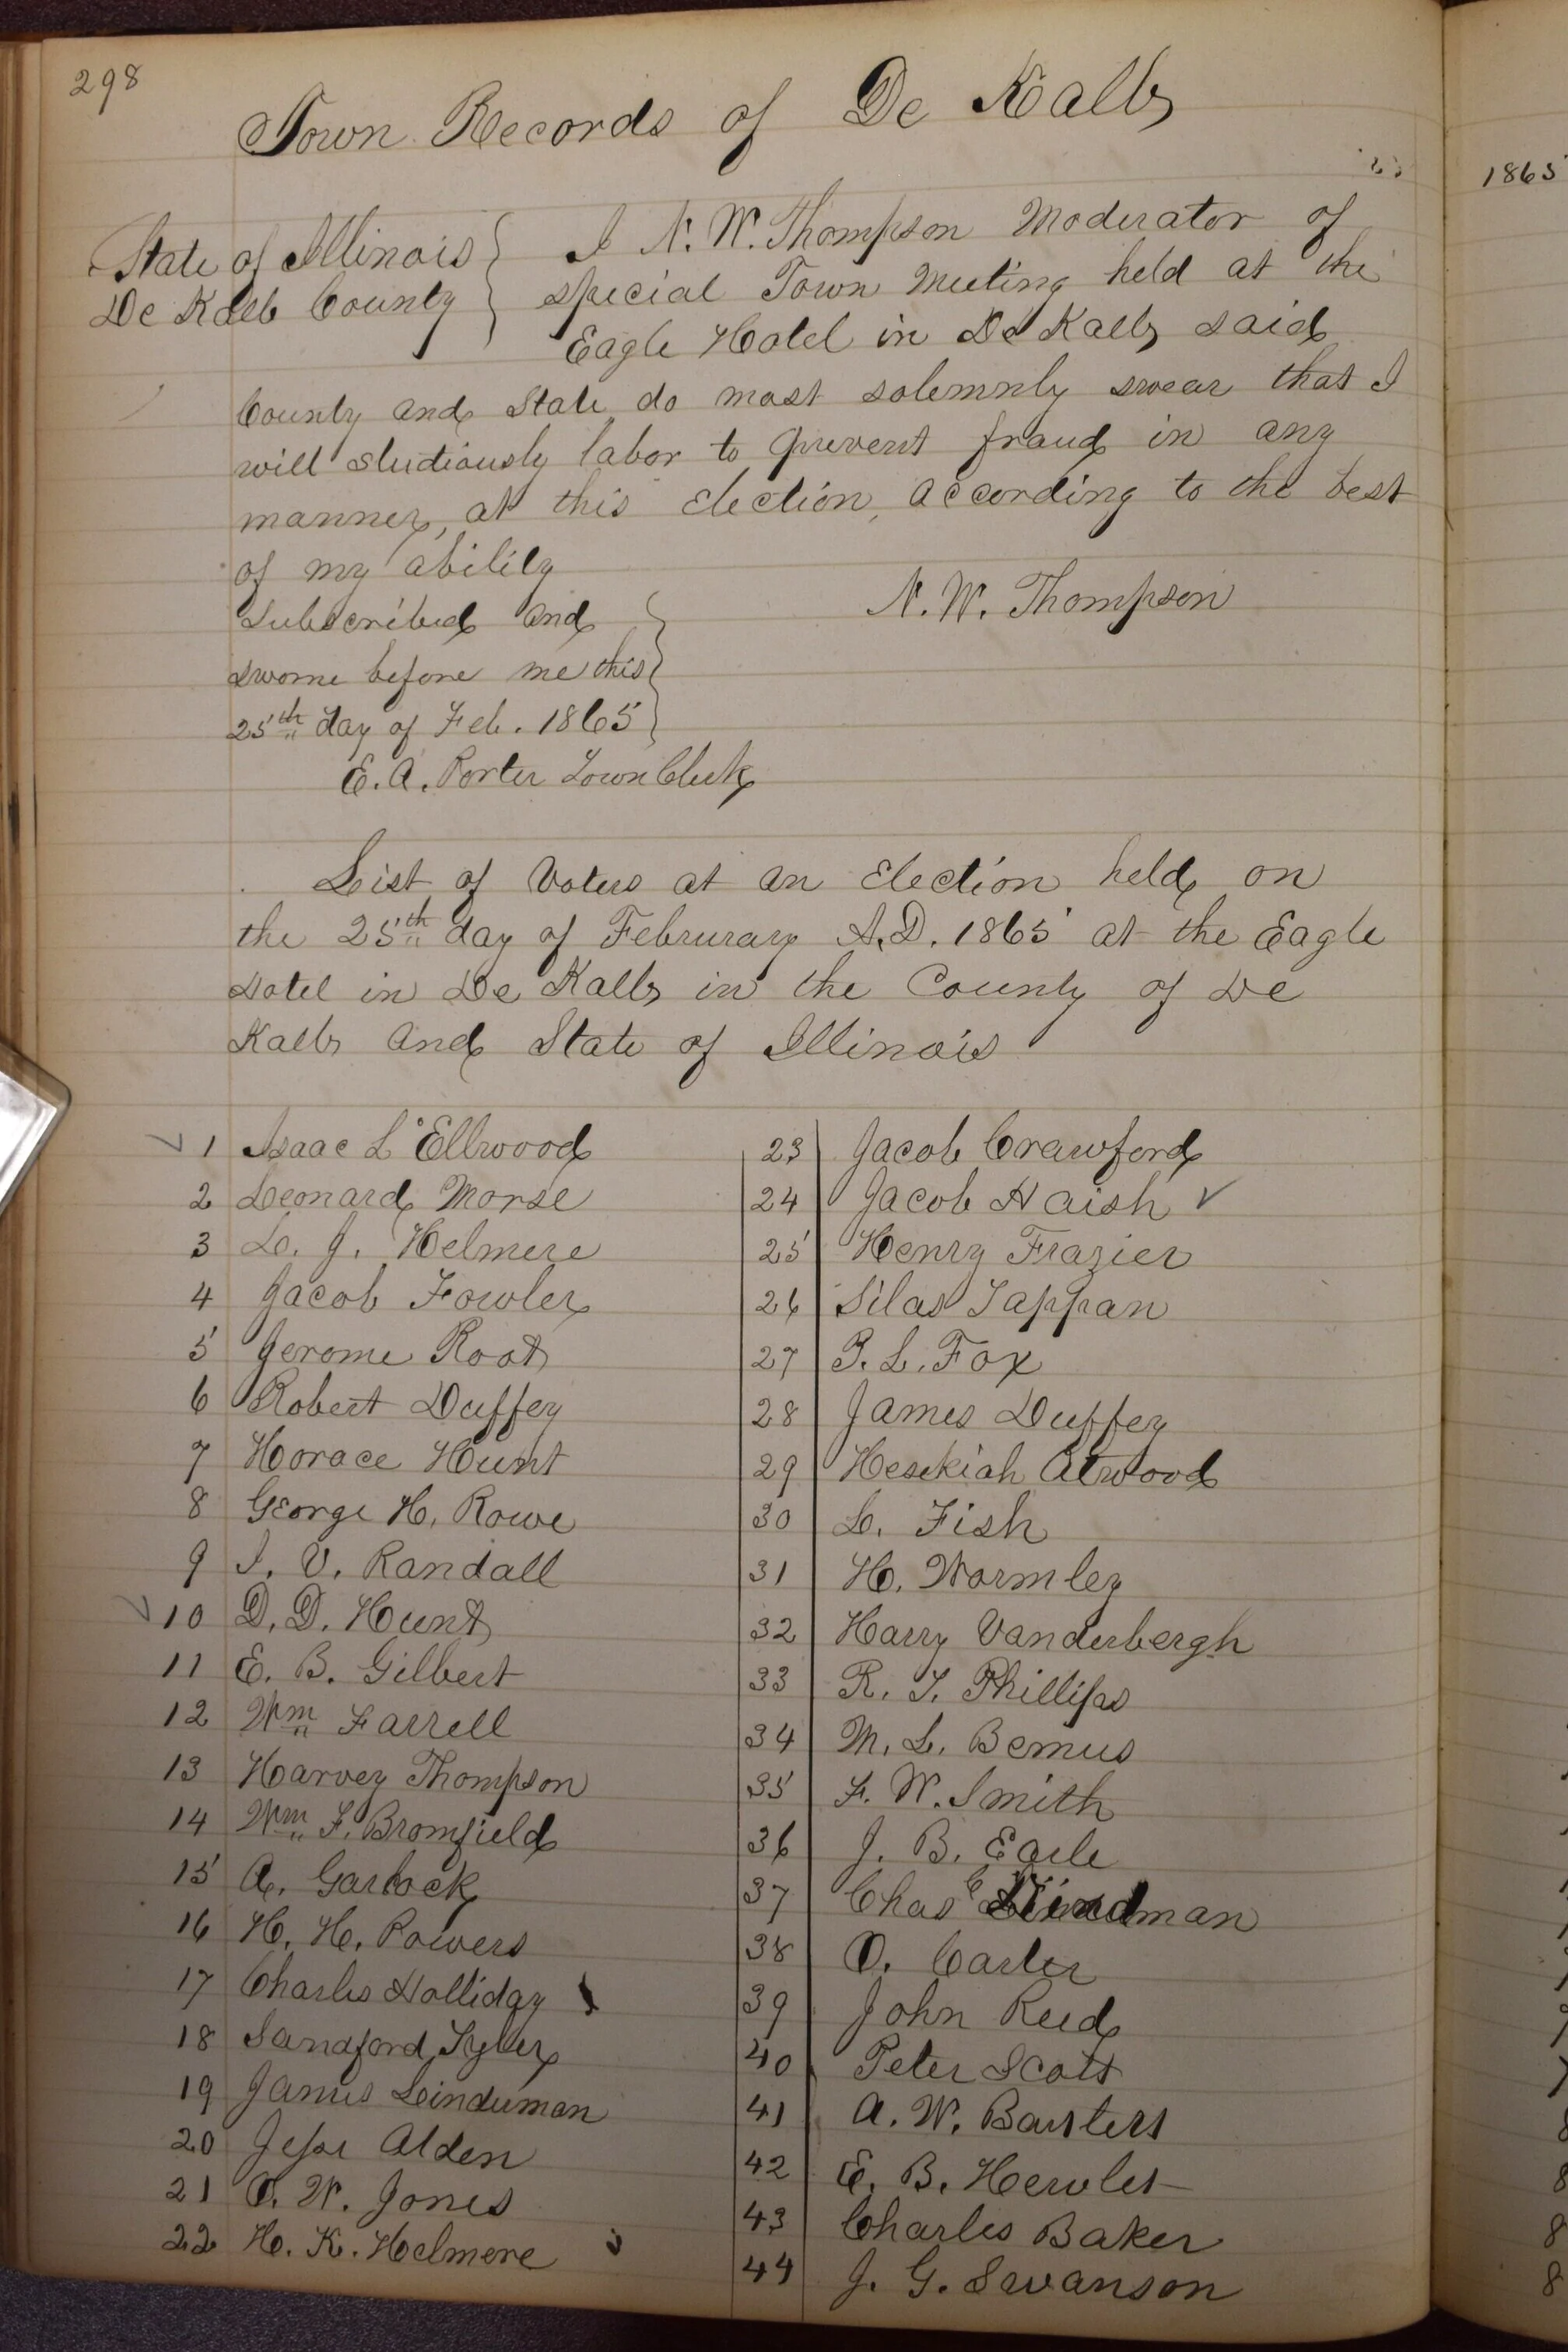 298
Town Records of De Kalb
1865
State of Illinois } I N. W. Thompson Moderator of
De Kalb County } special Town Meeting held at the
Eagle Hotel in De Kalb said
County and State do most solemnly swear that I
will studiously labor to prevent fraud in any
manner, at this election, according to the best
of my ability
N. W. Thompson
Subscribed and
sworne before me this
25th day of Feb. 1865
E. A. Porter Town Clerk
List of Voters at an Election held on
the 25th day of Februrary A.D. 1865 at the Eagle
Hotel in De Kalb in the County of De
Kalb and State of Illinois
1 Isaac L Ellwood
2 Leonard Morse
3 L. J. Helmere
4 Jacob Fowler
5 Jerome Root
6 Robert Duffey
7 Horace Hunt
8 George H. Rowe
9 I. V. Randall
10 D. D. Hunt
11 E. B. Gilbert
12 Wm Farrell
13 Harvey Thompson
14 Wm F. Bromfield
15 A. Garlock
16 H. H. Powers
17 Charles Holliday
18 Sandford Tyler
19 James Leinduman
20 Jesse Alden
21 O. W. Jones
22 H. K. Helmere
23 Jacob Crawford
24 Jacob Haish
25 Henry Frazier
26 Silas Tappan
27 P. L. Fox
28 James Duffey
29 Hesekiah Atwood
30 L. Fish
31 H. Wormley
32 Harry Vanderbergh
33 R. T. Phillips
34 M. L. Bemus
35 F. W. Smith
36 J. B. Earle
37 Chas
38 O. Carter
39 John Reed
40 Peter Scott
41 A. W.
42 E. B.
43 Charles Baker
44 J. G. Swanson